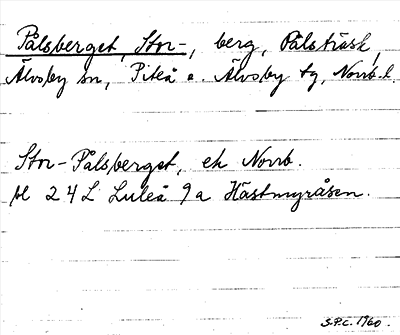 Pålsberget, Stor-, berg, Pålsträsk,
Älvsby sn, Piteå o. Älvsby tg, Norrb. l.
Stor-Pålsberget, ek Norrb.
bl 24L Luleå 9a Hästmyråsen.
S.P.C. 1960.